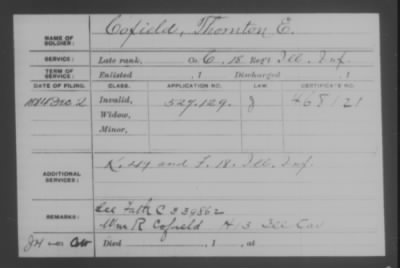 NAME OF SOLDIER: Cofield, Thornton E.
SERVICE: Late rank, Co. C, 18 Reg't Ill. Inf.
TERM OF SERVICE: Enlisted , 1 Discharged , 1
DATE OF FILING. CLASS. APPLICATION NO. LAW. CERTIFICATE NO.
Dec. 2 Invalid, 527.129. J 468121
Widow,
Minor,
ADDITIONAL SERVICES: and F. 18. Ill. Inf.
REMARKS: See Fath C 339862
Wm R Cofield H 3 Ill Cav
Died , 1 , at